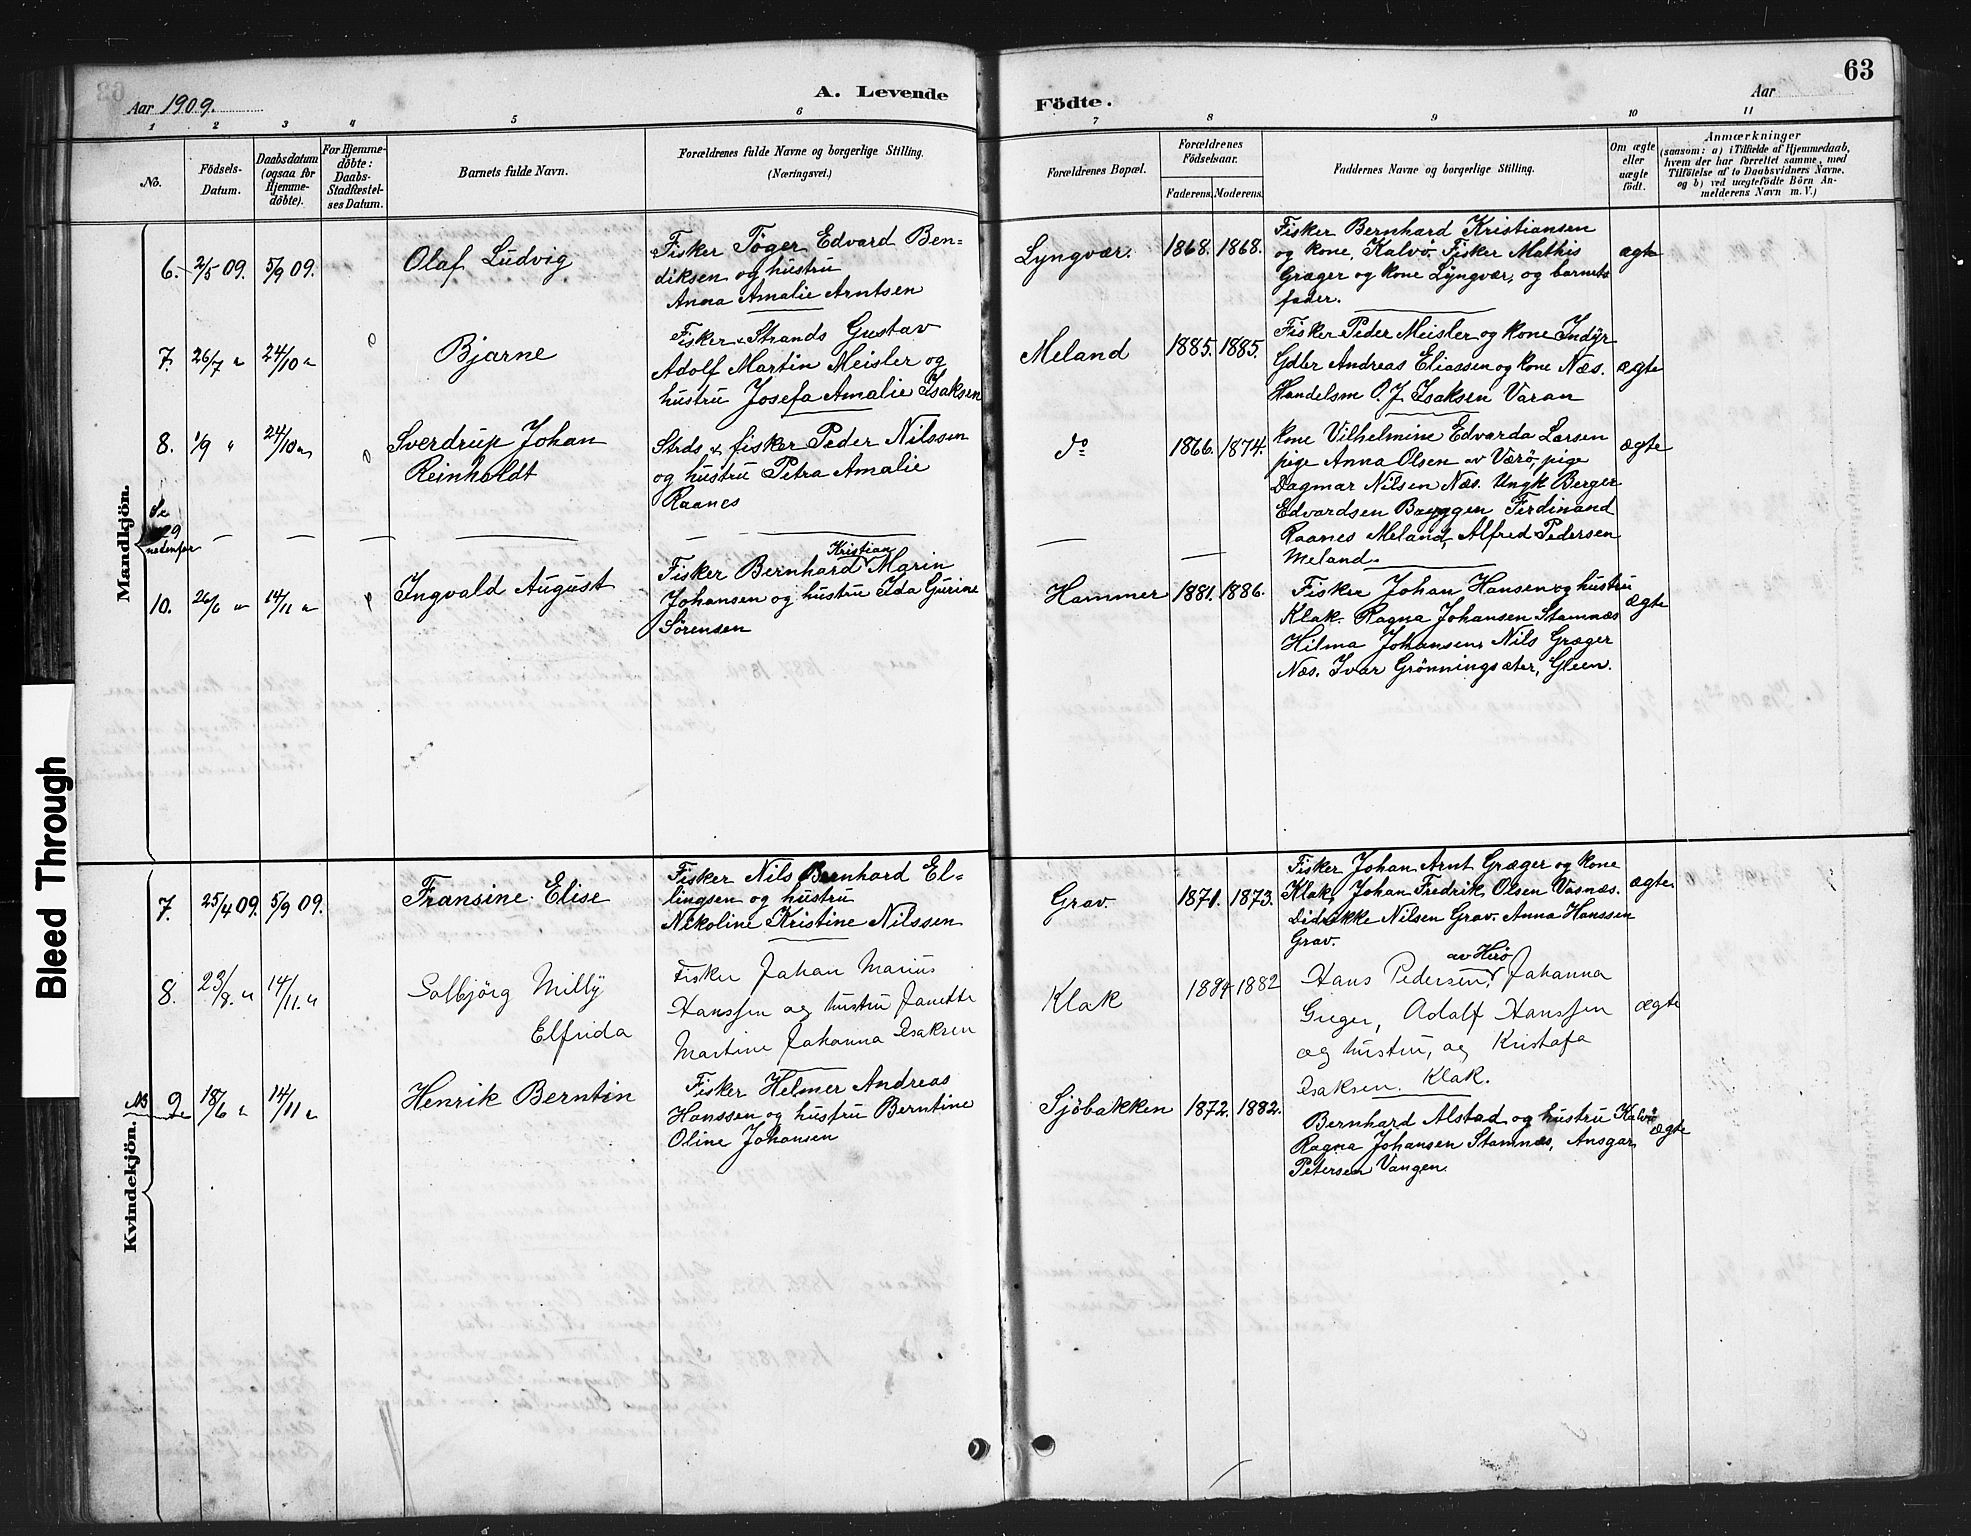 63
Aar 1909.
A. Levende
Födte.
Aar
1 2 3 4 5 6 7 8 9 10 11
No.
Födsels-
Datum.
Daabsdatum
(ogsaa for
Hjemme-
döbte).
For Hjemme-
döbte:
Daabs-
Stadfæstel-
ses Datum.
Barnets fulde Navn.
Forældrenes fulde Navne og borgerlige Stilling.
(Næringsvei.)
Forældrenes Bopæl.
Forældrenes
Födselsaar.
Faderens. Moderens.
Faddernes Navne og borgerlige Stilling.
Om ægte
eller
uægte
födt.
Anmærkninger
(saasom: a) i Tilfælde af Hjemmedaab,
hvem der har forrettet samme, med
Tilföielse af to Daabsvidners Navne.
og b) ved uægtefödte Börn An-
melderens Navn m. V.)
Mandkjön.
6. 2/5 09. 5/9 09.
Olaf Ludvig
Fisker Töger Edvard Ben=
diksen og hustru
Anna Amalie Arntsen
Lyngvær. 1868. 1868.
Fisker Bernhard Kristiansen
og kone, Kalvö. Fisker Mathis
Græger og kone Lyngvær, og barnets
fader.
ægte
7. 26/7 " 24/10 "
Bjarne
Fisker & Strands Gustav
Adolf Martin Meisler og
hustru Josefa Amalie Isaksen
Meland 1885. 1885.
Fisker Peder Meisler og kone Indyr
Gdbr Andreas Eliassen og kone Næs.
Handelsm O. J. Isaksen Varan
ægte
8. 1/9 " 24/10 "
Sverdrup Johan
Reinholdt
Strds & fisker Peder Nilssen
og hustru Petra Amalie
Raanes
do 1866. 1874.
kone Vilhelmine Edvarda Larsen
pige Anna Olsen av Værö, pige
Dagmar Nilsen Næs. Ungk Berger
Edvardsen Bayggen Ferdinand
Raanes Meland, Alfred Pedersen
Meland.
ægte
Se
9
nedenfor
10. 26/6 " 14/11 "
Ingvald August
Kristian
Fisker Bernhard Marin
Johansen og hustru Ida Gurine
Sörensen
Hammer 1881. 1886.
Fisker Johan Hansen og hustru
Klak. Ragna Johansen Stamnæs
Hilma Johansen, Nils Græger
Næs. Ivar Grönningsæter, Gleen.
ægte
Bleed Through
Kvindekjön.
7. 25/4 09. 5/9 09.
Fransine Elise
Fisker Nils Bernhard El=
lingsen og hustru
Nikoline Kristine Nilssen
Grav. 1871. 1873.
Fisker Johan Arnt Græger og kone
Klak, Johan Fredrik Olsen Vasnæs.
Didrikke Nilsen Grav. Anna Hanssen
Grav.
ægte
8. 23/8. " 14/11. "
Solbjörg Milly
Elfrida
Fisker Johan Marius
Hanssen og hustru Janette
Martine Johanna Isaksen
Klak 1884 1882
av Herö
Hans Pedersen, Johanna
Greger, Adolf Hanssen
og hustru, og Kristofa
Isaksen. Klak.
ægte
NB 9. 18/6 " 14/11 "
Henrik Berntin
Fisker Helmer Andreas
Hanssen og hustru Berntine
Oline Johansen
Sjöbakken 1872. 1882.
Bernhard Alstad og hustru Kalvö
Ragna Johansen Stamnæs, Ansgar
Petersen Vangen.
ægte